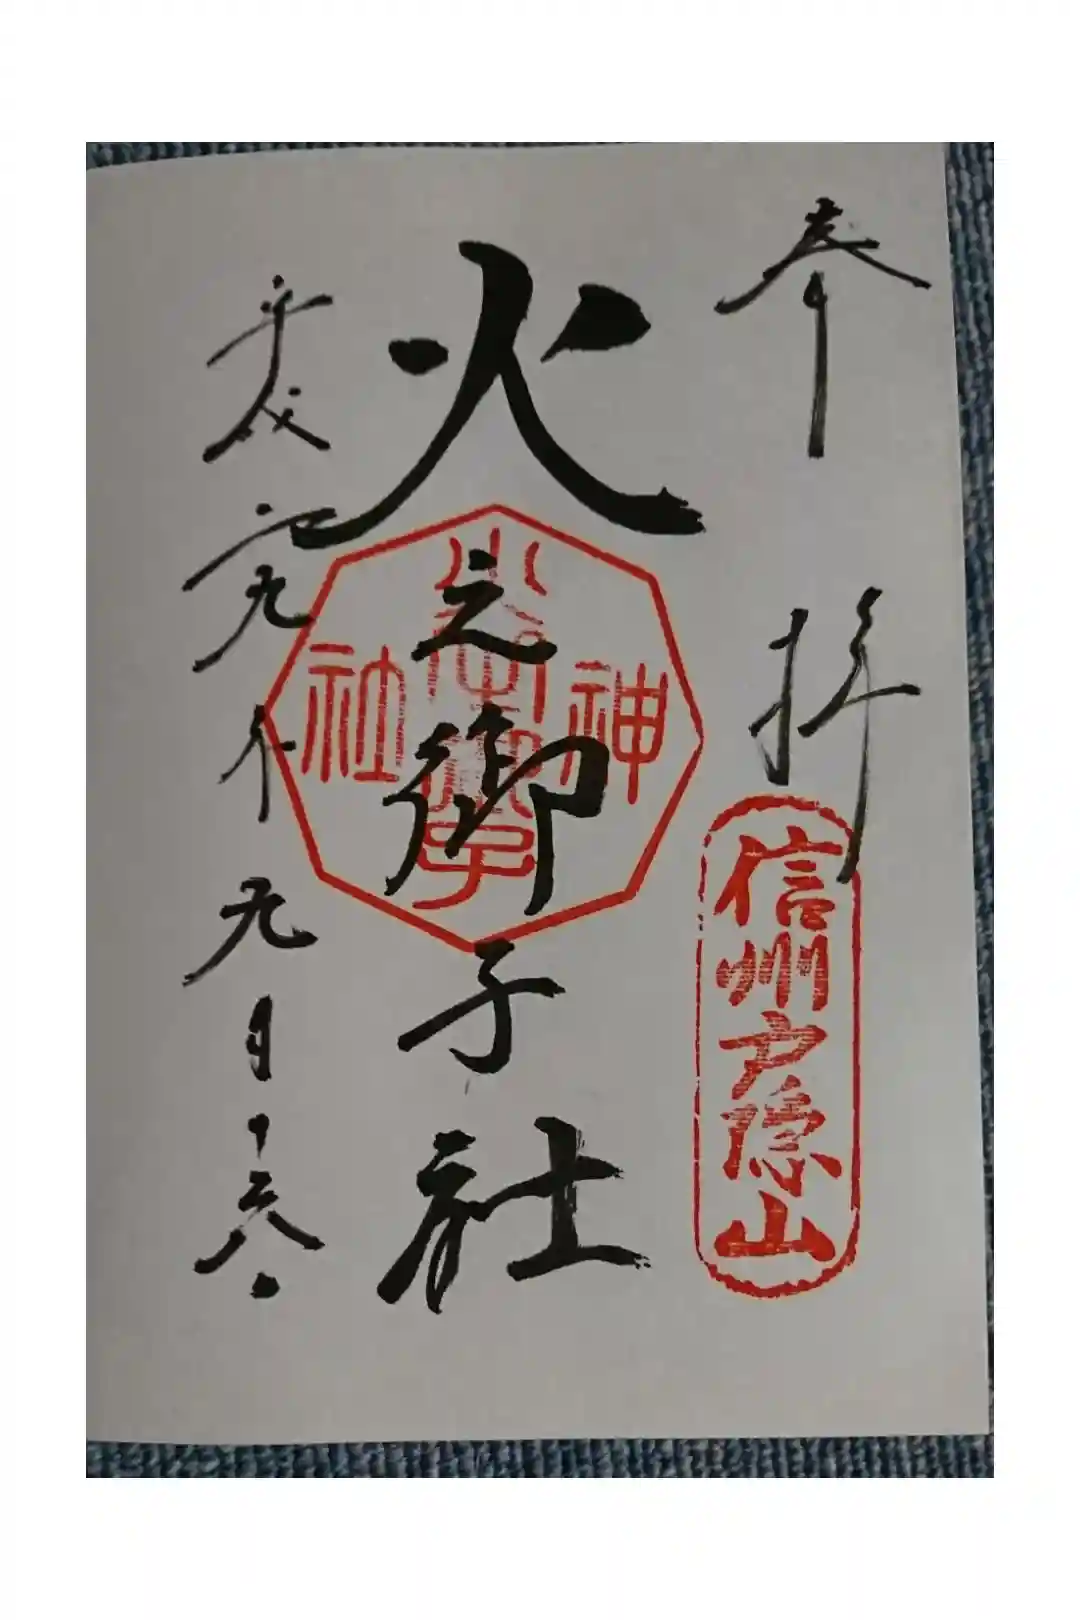 奉拝
信州戸隠山
火之御子社
神
社
平成二九年九月十六日